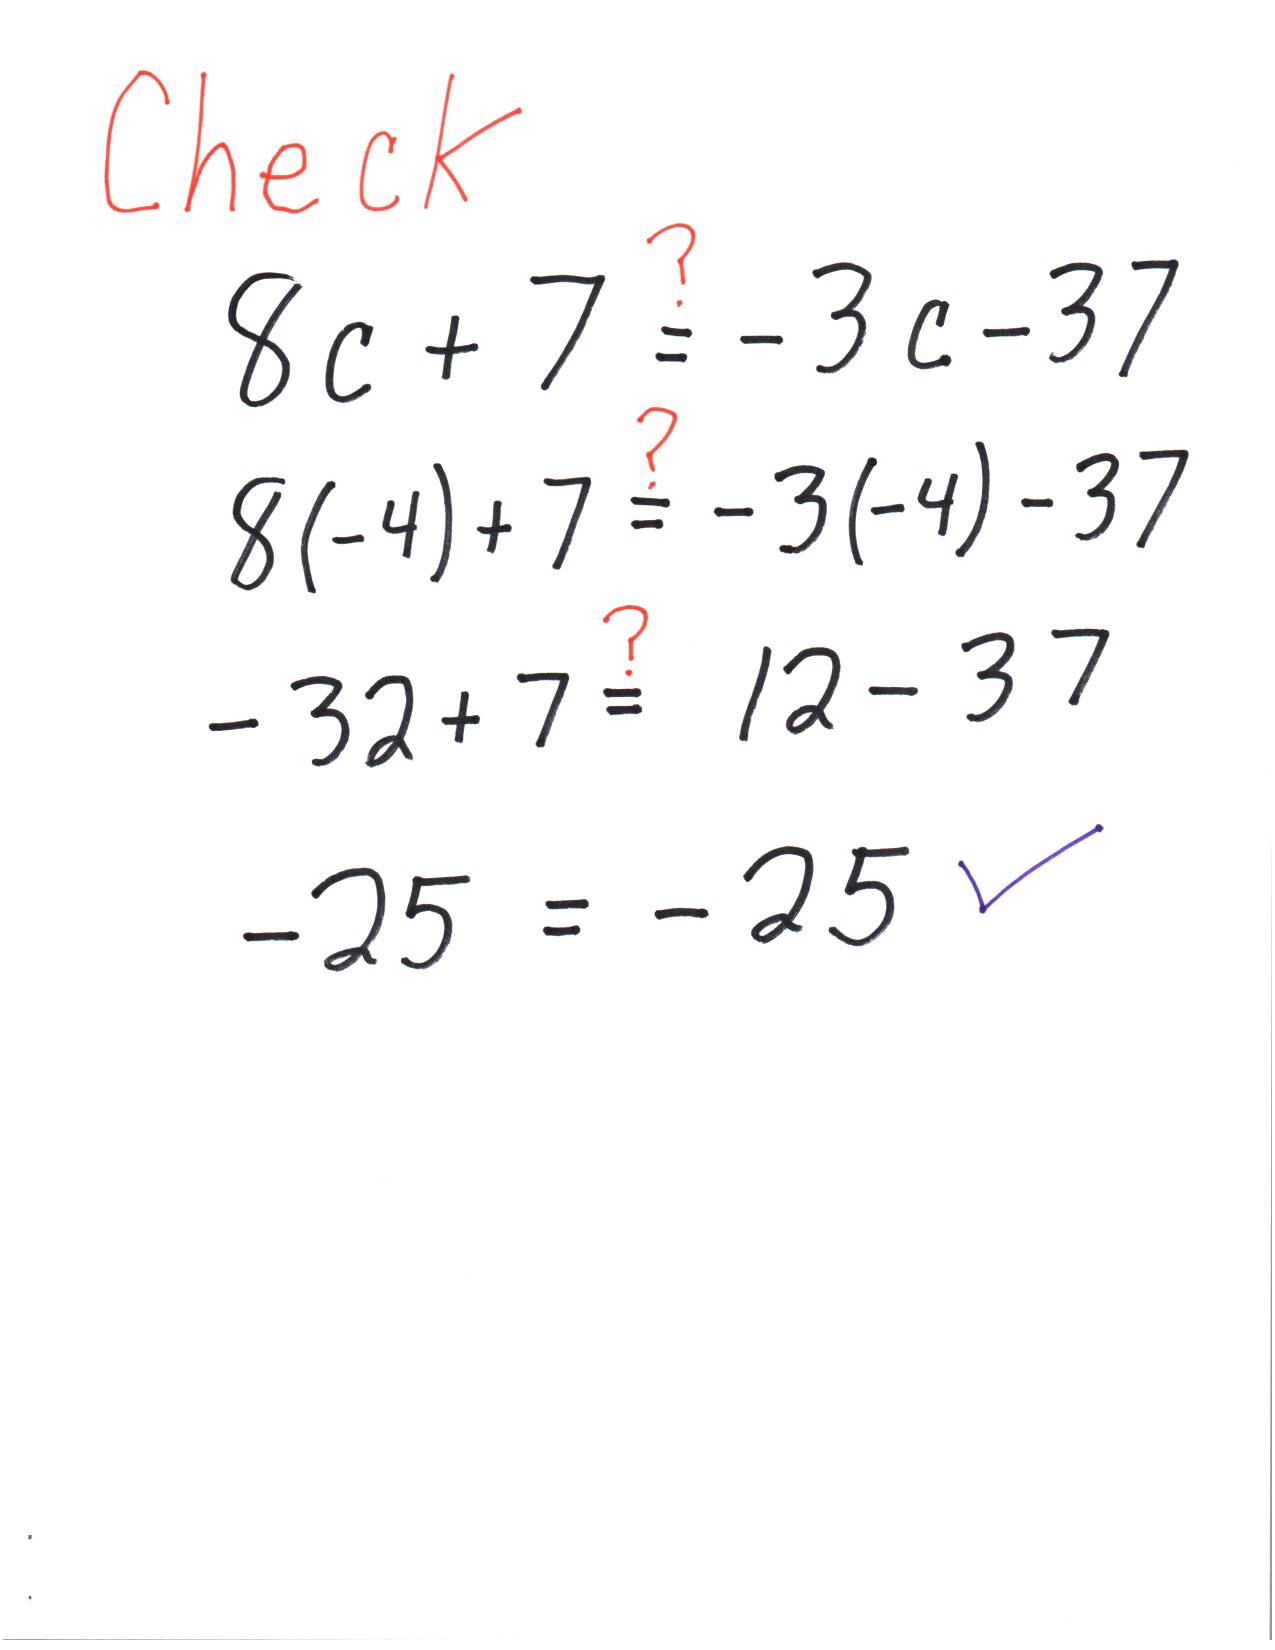 Check
8c + 7 ?= -3c - 37
8(-4) + 7 ?= -3(-4) - 37
-32 + 7 ?= 12 - 37
-25 = -25 ✓